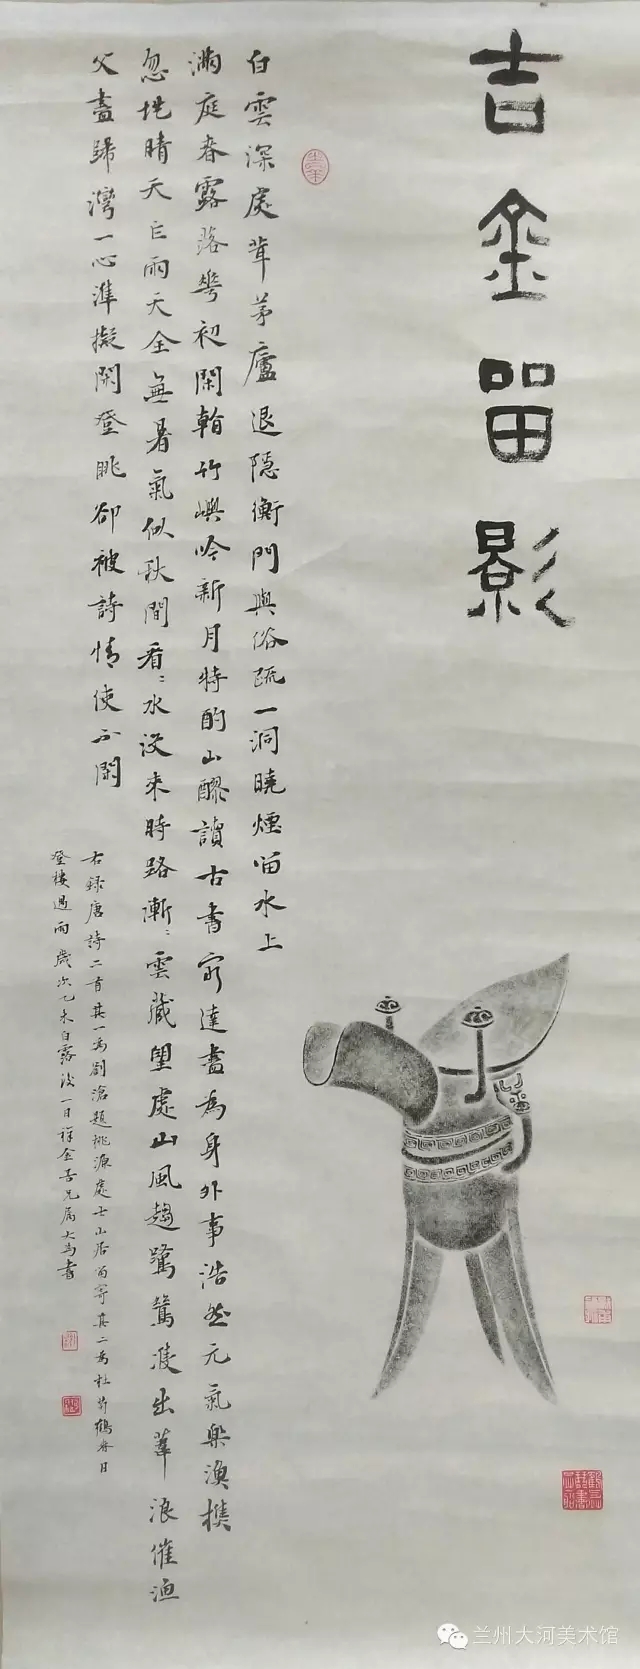 吉金留影
白雲深處葺茅廬退隱衡門與俗疏一洞曉煙留水上
滿庭春露落花初閑輪竹嶼吟新月特酌山醪讀古書窮達盡為身外事浩然元氣樂漁樵
忽地晴天乍雨天全無暑氣似秋間看〻水沒來時路漸〻雲藏望處山風趨鷺鷥雙出葦浪催漁
父盡歸灣一心準擬閑登眺卻被詩情使不閑
右錄唐詩二首其一為劉滄題桃源處士山居留寄其二為杜荀鶴春日
登樓遇雨歲次乙未白露後一日祥金吾兄屬大為書
兰州大河美术馆